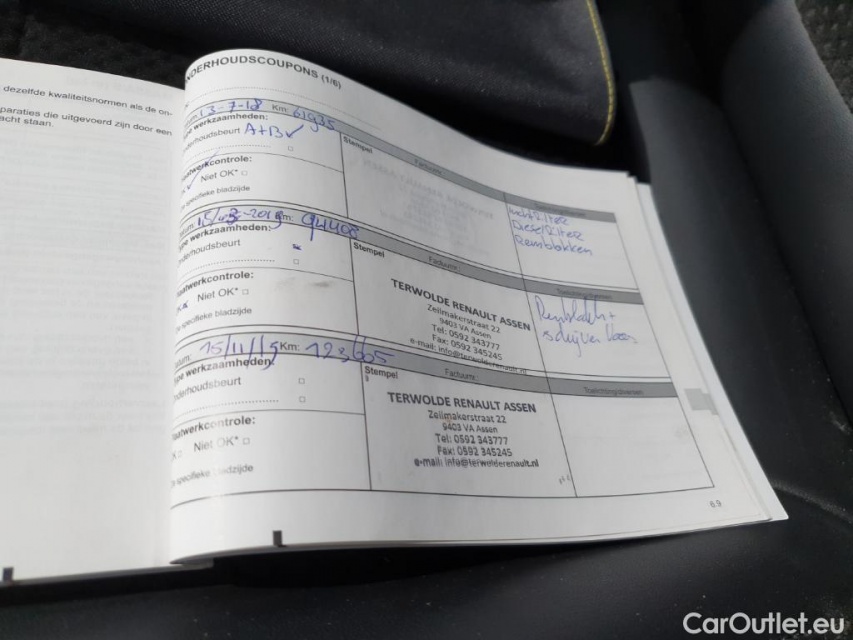 dezelfde kwaliteitsnormen als de on-
paraties die uitgevoerd zijn door een
acht staan.
NDERHOUDSCOUPONS (1/6)
13-7-18 Km: 61935
werkzaamheden:
nderhoudsbeurt A+B ✓
Stempel
Factuurnr.:
controle:
Niet OK*
specifieke bladzijde
Luchtfilter
Dieselfilter
Remblokken
15/03-2019 Km: 94408
type werkzaamheden:
derhoudsbeurt
Stempel
Factuurnr.:
aatwerkcontrole:
Niet OK*
specifieke bladzijde
TERWOLDE RENAULT ASSEN
Zeilmakerstraat 22
9403 VA Assen
Tel: 0592 343777
Fax: 0592 345245
e-mail: info@terwolderenault.nl
Remblokk+
schijven
15/11/19 Km: 123605
type werkzaamheden:
nderhoudsbeurt
Stempel
Factuurnr.:
aatwerkcontrole:
Niet OK*
specifieke bladzijde
TERWOLDE RENAULT ASSEN
Zeilmakerstraat 22
9403 VA Assen
Tel: 0592 343777
Fax: 0592 345245
e-mail: info@terwolderenault.nl
6.9
CarOutlet.eu